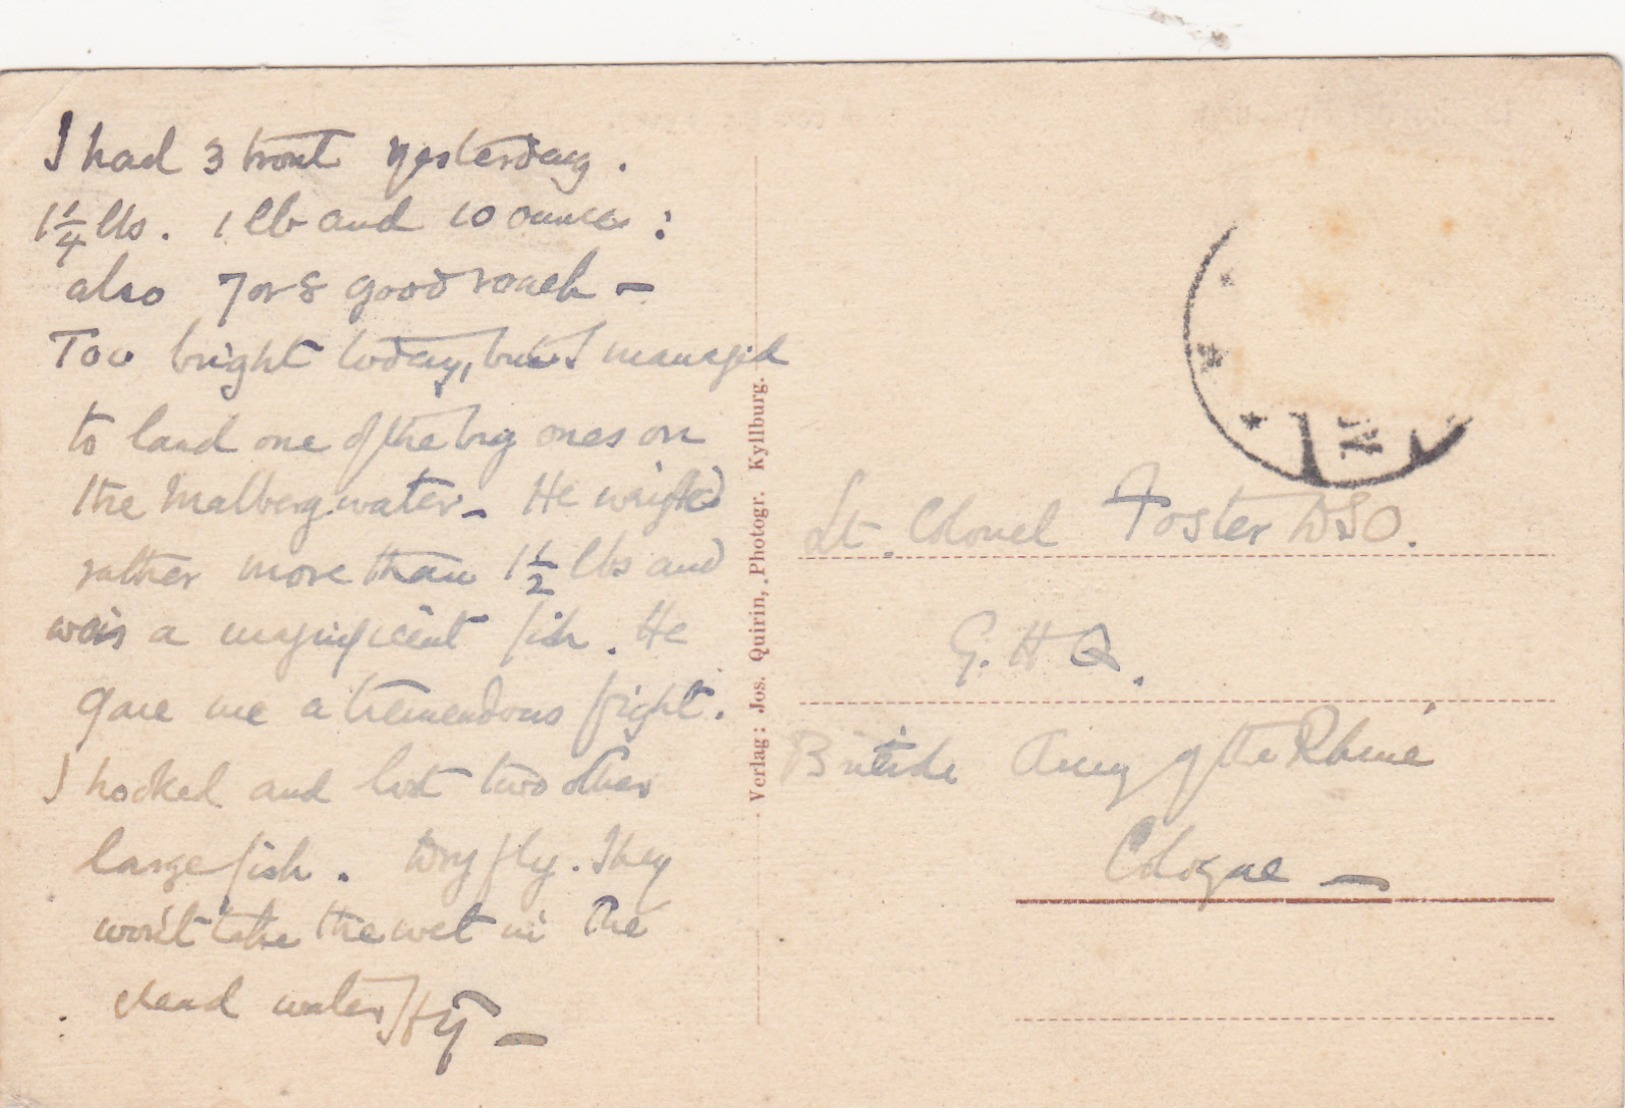 I had 3 trout yesterday.
1¼ lbs. 1 lb and 10 ounces:
also 7 or 8 good roach –
Too bright today, but I managed
to land one of the big ones on
the Malberg water – He weighed
rather more than 1½ lbs and
was a magnificent fish. He
gave me a tremendous fight.
I hooked and lost two other
large fish. Dry fly. They
won't take the wet in the
dead water
Verlag: Jos. Quirin, Photogr. Kyllburg.
Lt. Colonel Foster DSO.
G.H.Q.
British Army of the Rhine
Cologne –